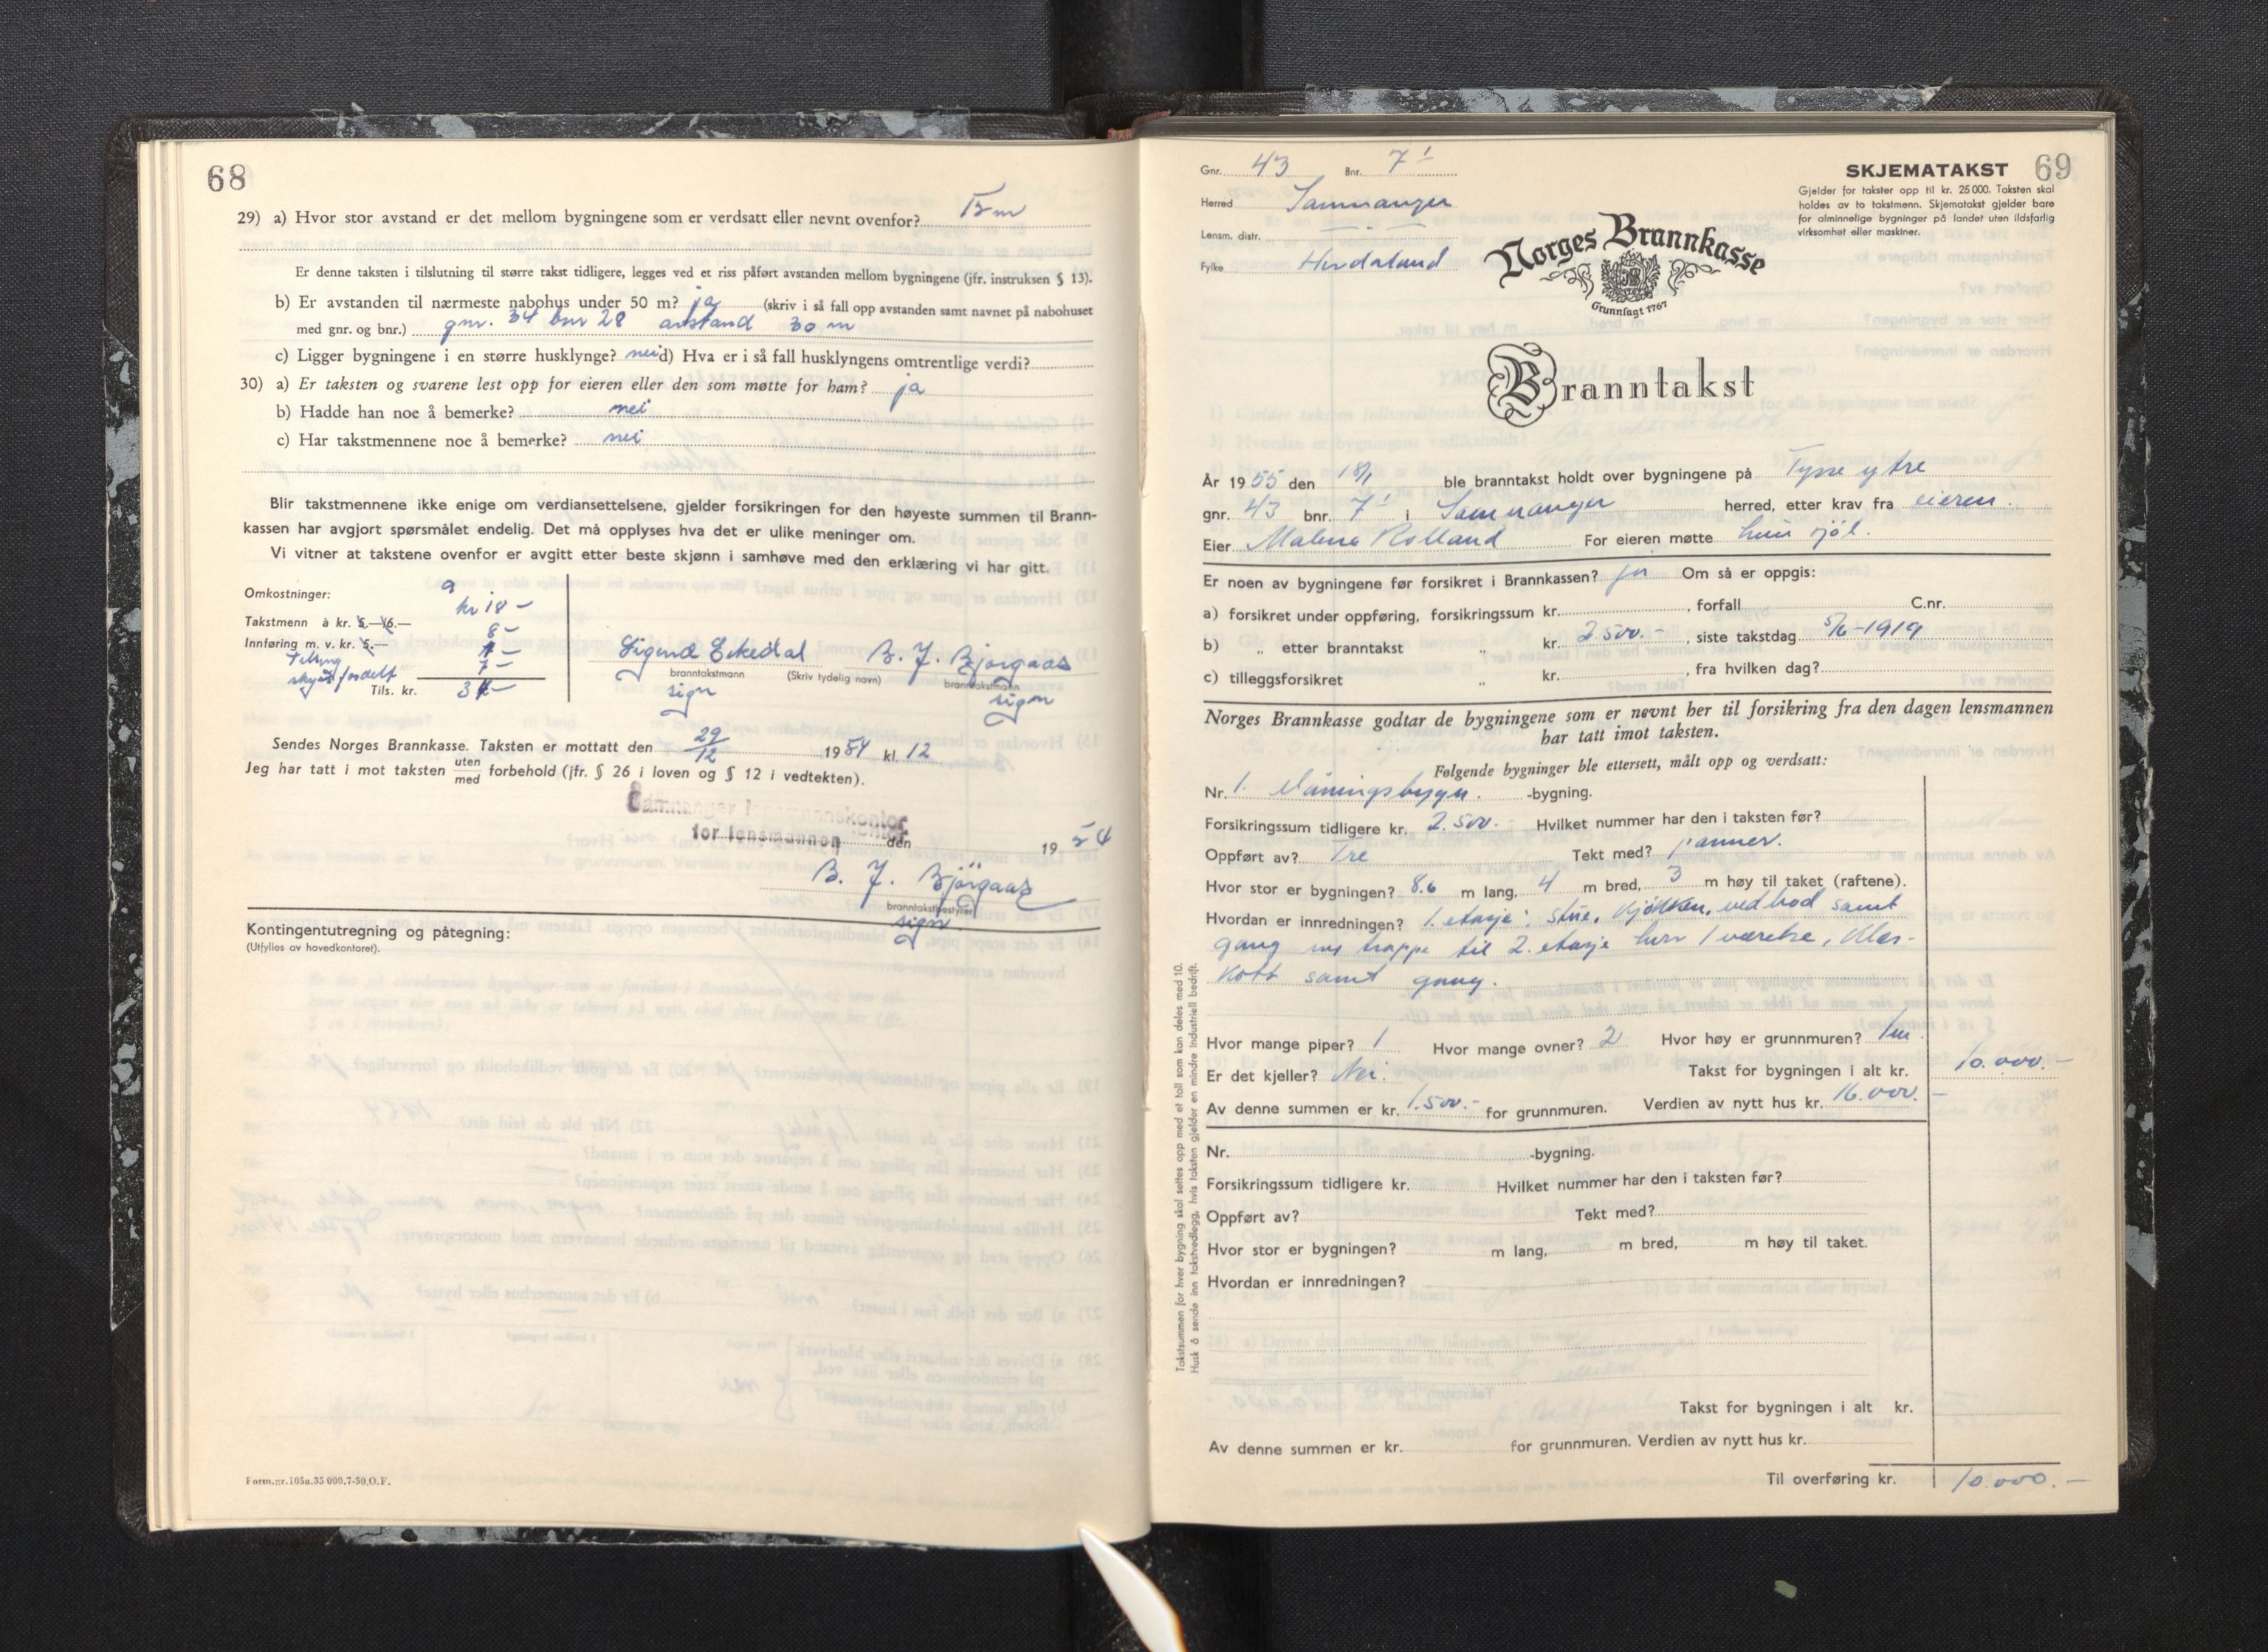 68
29) a) Hvor stor avstand er det mellom bygningene som er verdsatt eller nevnt ovenfor?
Er denne taksten i tilslutning til større takst tidligere, legges ved et riss påført avstanden mellom bygningene (jfr. instruksen § 13).
b) Er avstanden til nærmeste nabohus under 50 m? ja (skriv i så fall opp avstanden samt navnet på nabohuset
med gnr. og bnr.) gnr. 34 bnr 28 avstand 30 m
c) Ligger bygningene i en større husklynge? nei d) Hva er i så fall husklyngens omtrentlige verdi?
30) a) Er taksten og svarene lest opp for eieren eller den som møtte for ham? ja
b) Hadde han noe å bemerke? nei
c) Har takstmennene noe å bemerke? nei
Blir takstmennene ikke enige om verdiansettelsene, gjelder forsikringen for den høyeste summen til Brann-
kassen har avgjort spørsmålet endelig. Det må opplyses hva det er ulike meninger om.
Vi vitner at takstene ovenfor er avgitt etter beste skjønn i samhøve med den erklæring vi har gitt.
Omkostninger:
Takstmenn à kr. 5.—6.— kr 18 —
Innføring m. v. kr. 5.— 8 —
7 —
Tils. kr.
brantakstmann (Skriv tydelig navn) B. J. Bjørgaas branntakstmann
sign sign
Sendes Norges Brannkasse. Taksten er mottatt den 29/12 1954 kl. 12
Jeg har tatt i mot taksten uten/med forbehold (jfr. § 26 i loven og § 12 i vedtekten).
Samnanger lensmannskontor
for lensmannen den 19 54
B. J. Bjørgaas
branntakstbestyrer
sign.
Kontingentutregning og påtegning:
(Utfylles av hovedkontoret).
Form.nr.105a.35 000.7-50.O.F.
69
SKJEMATAKST
Gjelder for takster opp til kr. 25 000. Taksten skal
holdes av to takstmenn. Skjematakst gjelder bare
for alminnelige bygninger på landet uten ildsfarlig
virksomhet eller maskiner.
Gnr. 43 Bnr. 7
Herred Samnanger
Lensm. distr. — " —
Fylke Hordaland
Norges Brannkasse
Grunnlagt 1767
Branntakst
År 1955 den 18/1 ble branntakst holdt over bygningene på Tysse ytre
gnr. 43 bnr. 7 i Samnanger herred, etter krav fra eieren.
Eier Malena Rolland For eieren møtte hun sjøl.
Er noen av bygningene før forsikret i Brannkassen? ja Om så er oppgis:
a) forsikret under oppføring, forsikringssum kr. , forfall C.nr.
b) „ etter branntakst „ kr. 2.500.- , siste takstdag 5/6-1919
c) tilleggsforsikret „ kr. , fra hvilken dag?
Norges Brannkasse godtar de bygningene som er nevnt her til forsikring fra den dagen lensmannen
har tatt imot taksten.
Følgende bygninger ble ettersett, målt opp og verdsatt:
Nr. 1. Våningsbygn. -bygning.
Forsikringssum tidligere kr. 2.500. Hvilket nummer har den i taksten før?
Oppført av? Tre Tekt med? panner.
Hvor stor er bygningen? 8.6 m lang, 4 m bred, 3 m høy til taket (raftene).
Hvordan er innredningen? 1. etasje: stue, kjøkken, vedbod samt
gang m/ trappe til 2. etasje hvor 1 værelse, Kles-
kott samt gang.
Hvor mange piper? 1 Hvor mange ovner? 2 Hvor høy er grunnmuren? 1 m
Er det kjeller? Nei. Takst for bygningen i alt kr. 10.000.-
Av denne summen er kr. 1.500.- for grunnmuren. Verdien av nytt hus kr. 16.000.-
Nr. -bygning.
Forsikringssum tidligere kr. Hvilket nummer har den i taksten før?
Oppført av? Tekt med?
Hvor stor er bygningen? m lang, m bred, m høy til taket.
Hvordan er innredningen?
Takst for bygningen i alt kr.
Av denne summen er kr. for grunnmuren. Verdien av nytt hus kr.
Til overføring kr. 10.000.-
Takstsummen for hver bygning skal settes opp med et tall som kan deles med 10.
Husk å sende inn takstvedlegg, hvis taksten gjelder en mindre industriell bedrift.